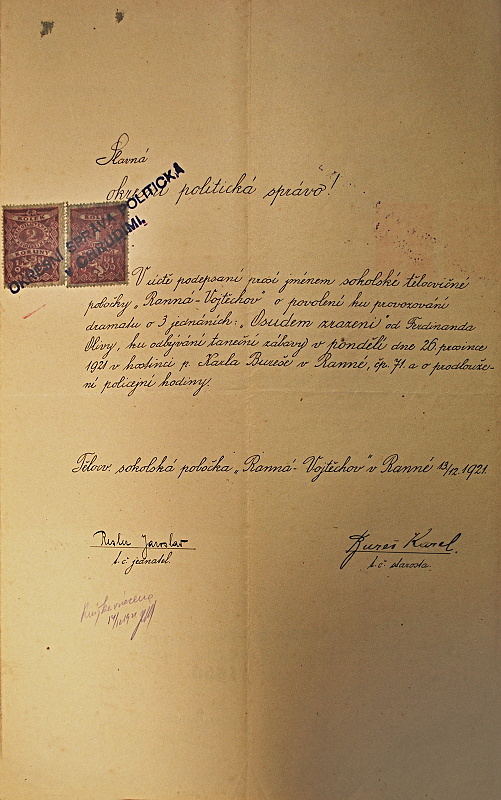 Slavná
okresní politická správo!
OKRESNÍ SPRÁVA POLITICKÁ
V CHRUDIMI,
KOLEK
KOLEK
V úctě podepsaní prosí jménem sokolské tělocvičné
pobočky „Ranná-Vojtěchov" o povolení ku provozování
dramatu o 3 jednáních: „Osudem zrazeni" od Ferdinanda
Olivy, ku odbývání taneční zábavy v pondělí dne 26. prosince
1921 v hostinci p. Karla Bureše v Ranné, čp. 71. a o prodlouže-
ní policejní hodiny.
Tělocv. sokolská pobočka „Ranná-Vojtěchov" v Ranné 13/12 1921.
Jaroslav
t. č. jednatel.
Bureš Karel.
t. č. starosta.